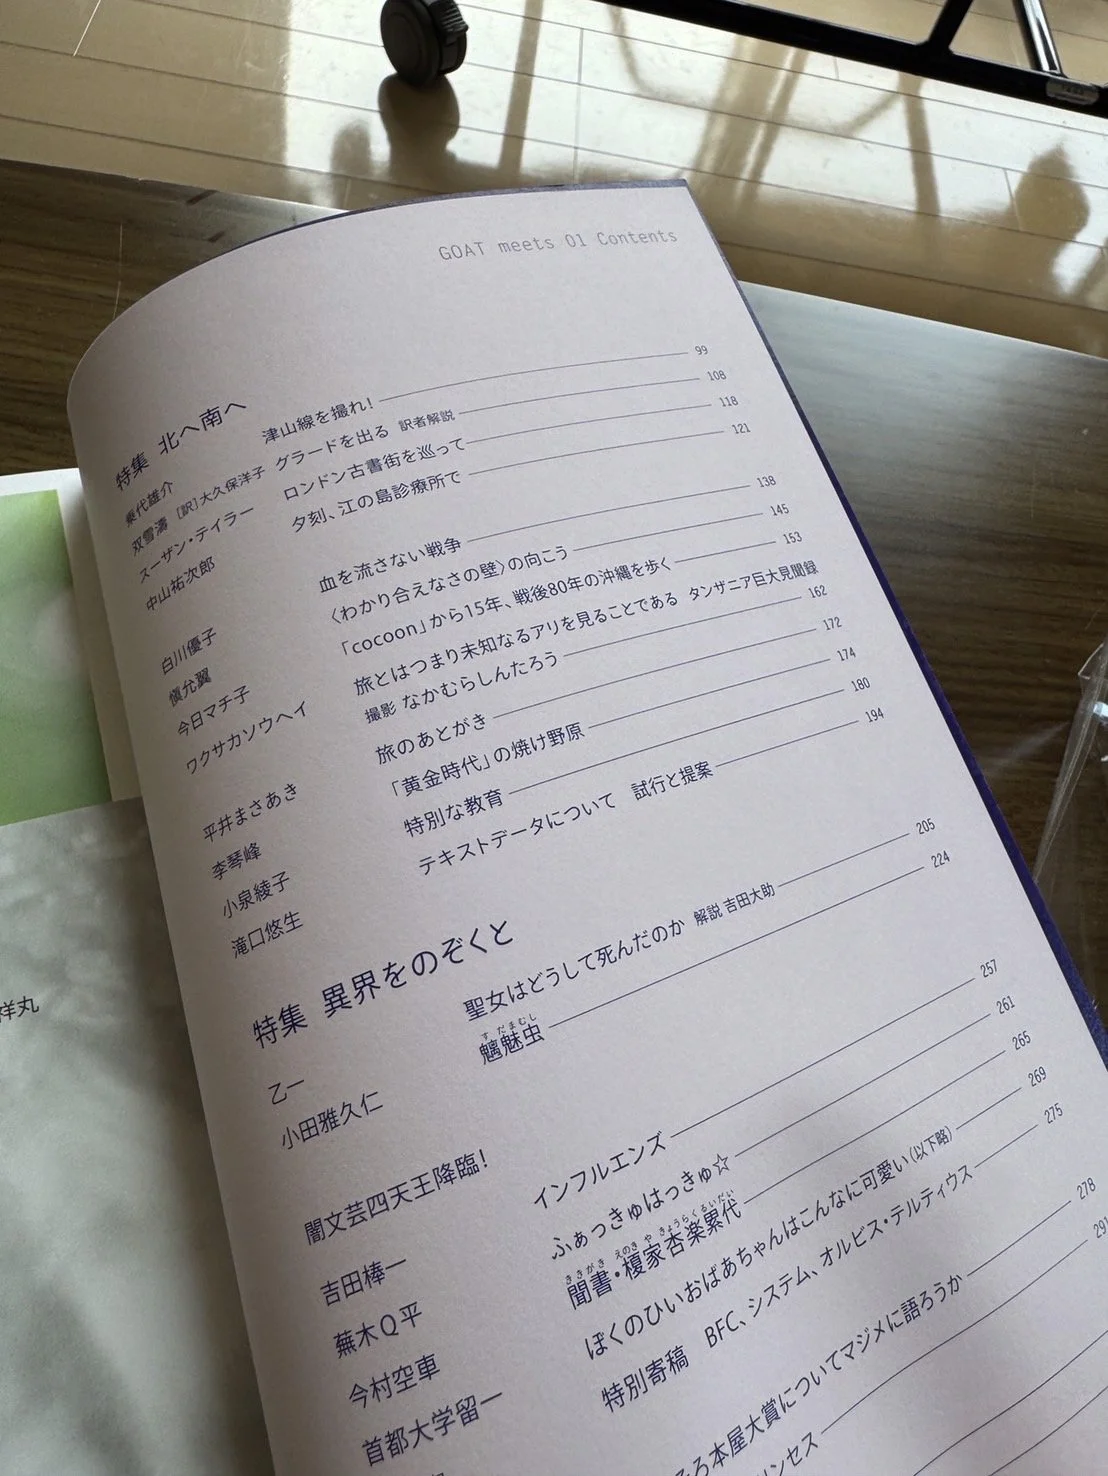 GOAT meets 01 Contents
特集 北へ南へ
乗代雄介 津山線を撮れ! 99
双雪濤 [訳]大久保洋子 グラードを出る 訳者解説 108
スーザン・テイラー ロンドン古書街を巡って 118
中山祐次郎 夕刻、江の島診療所で 121
白川優子 血を流さない戦争 138
愼允翼 〈わかり合えなさの壁〉の向こう 145
今日マチ子 「cocoon」から15年、戦後80年の沖縄を歩く 153
ワクサカソウヘイ 旅とはつまり未知なるアリを見ることである タンザニア巨大見聞録
撮影 なかむらしんたろう 162
平井まさあき 旅のあとがき 172
李琴峰 「黄金時代」の焼け野原 174
小泉綾子 特別な教育 180
滝口悠生 テキストデータについて 試行と提案 194
特集 異界をのぞくと
乙一 聖女はどうして死んだのか 解説 吉田大助 205
小田雅久仁 魑魅虫 すだまむし 224
闇文芸四天王降臨!
吉田棒一 インフルエンズ 257
蕪木Q平 ふぁっきゅはっきゅ☆ 261
今村空車 聞書・榎家杏楽累代 ききがき えのき や きょうらくるいだい 265
首都大学留一 ぼくのひいおばあちゃんはこんなに可愛い(以下略) 269
特別寄稿 BFC、システム、オルビス・テルティウス 275
ろ本屋大賞についてマジメに語ろうか 278
リンセス 291
祥丸